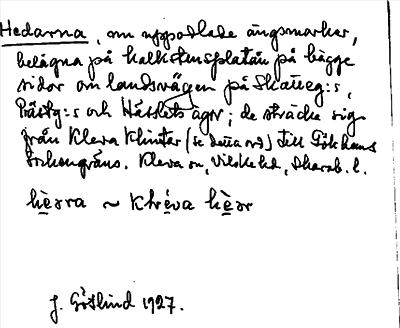 Hedarna, nu uppodlade ängsmarker,
belägna på kalkstensplatån på bägge
sidor om landsvägen på Skatteg:s,
Prästg:s och Håkets ägor; de sträcka sig
från Kleva Klintar (se detta ord) till Gökhems
sockengräns. Kleva sn, Vilske hd, Skarab. l.
hèɐra ~ Kléva hèɐr
J. Götlind 1927.